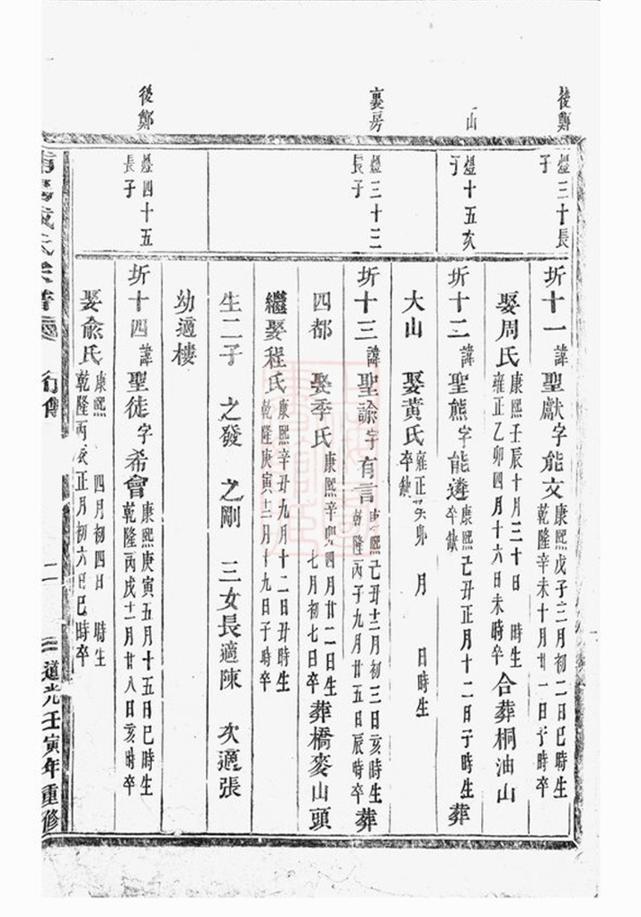 後鄭
燈三十長
子
圻十一諱聖獻字能文康熙戊子三月初二日巳時生
乾隆辛未十月廿一日子時卒
娶周氏康熙壬辰十月三十日 時生
雍正乙卯四月十六日未時卒合葬桐油山
山
燈十五次
子
圻十二諱聖熊字能遴康熙己丑正月十二日子時生
卒缺葬
大山 娶黃氏雍正癸卯 月 日時生
卒缺
裏房
燈三十三
長子
圻十三諱聖諭字有言康熙己丑十二月初三日亥時生
乾隆丙子九月廿五日辰時卒葬
四都 娶季氏康熙辛卯四月廿二日生
七月初七日卒葬橋麥山頭
繼娶程氏康熙辛丑九月十二日丑時生
乾隆庚寅十二月十九日子時卒
生二子 之發 之剛 三女長適陳 次適張
幼適樓
後鄭
燈四十五
長子
圻十四諱聖徒字希會康熙庚寅五月十五日巳時生
乾隆丙戌十二月廿八日亥時卒
娶俞氏康熙 四月初四日 時生
乾隆丙辰正月初六日巳時卒
氏宗譜
行傳
二
道光壬寅年重修